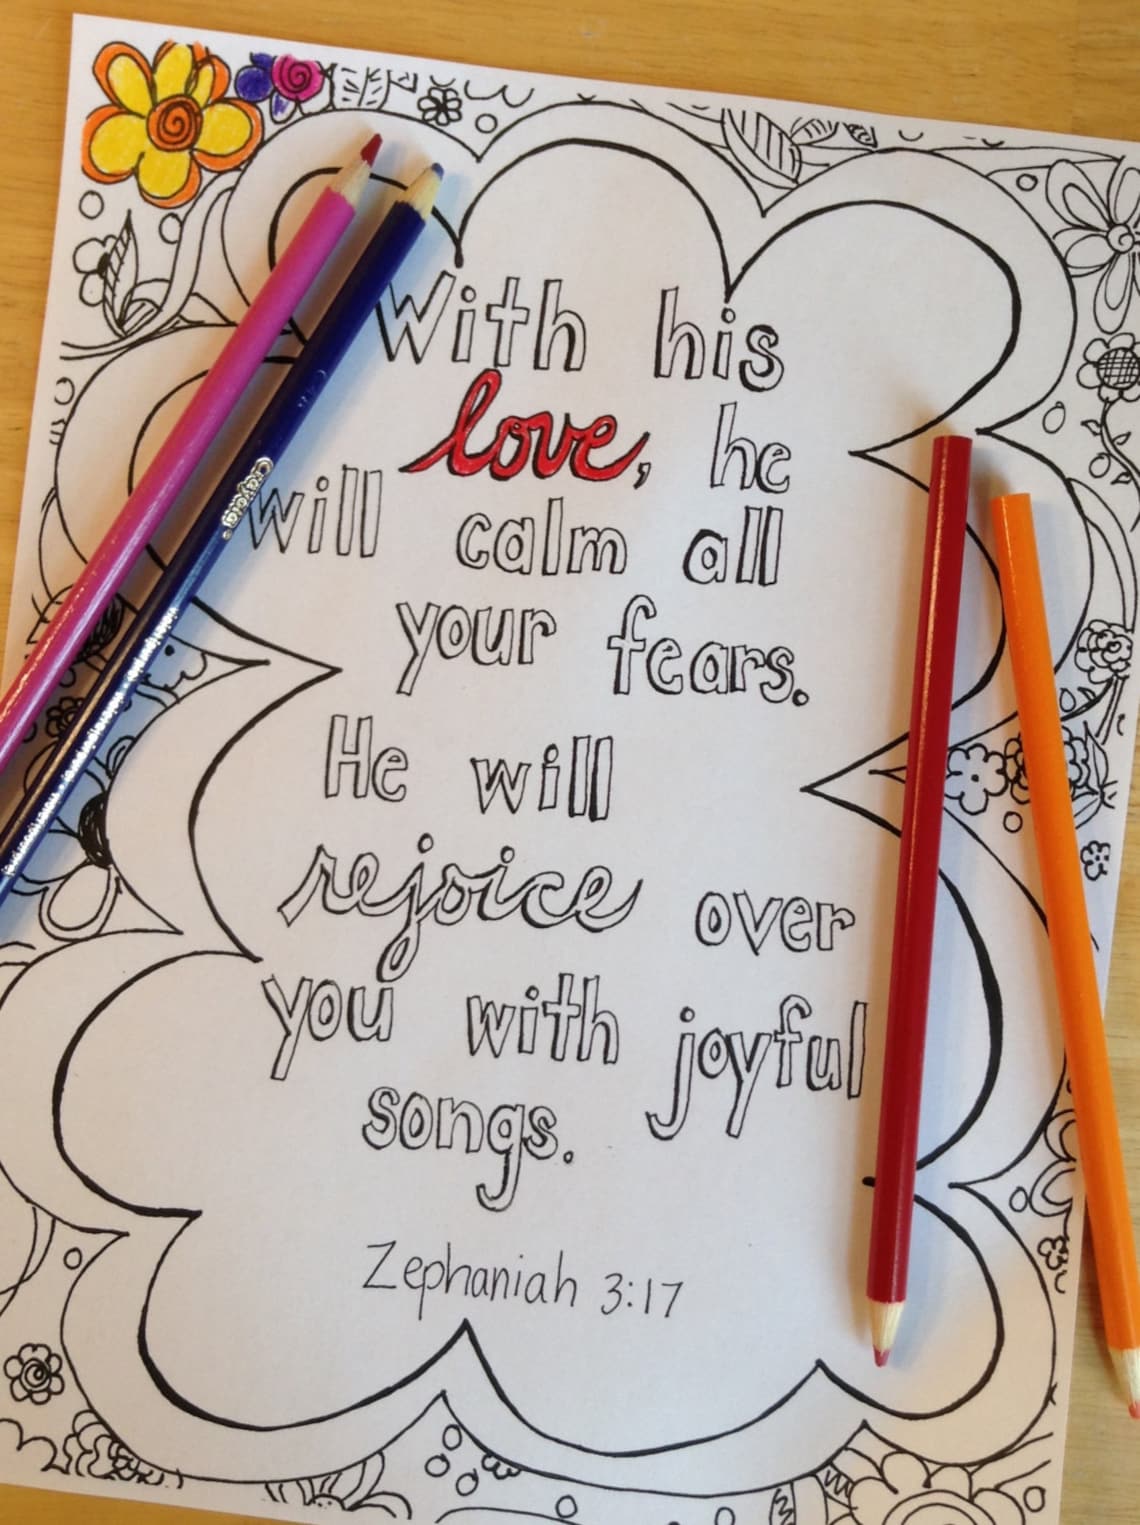 With his
love, he
will calm all
your fears.
He will
rejoice over
you with joyful
songs.
Zephaniah 3:17
Crayola